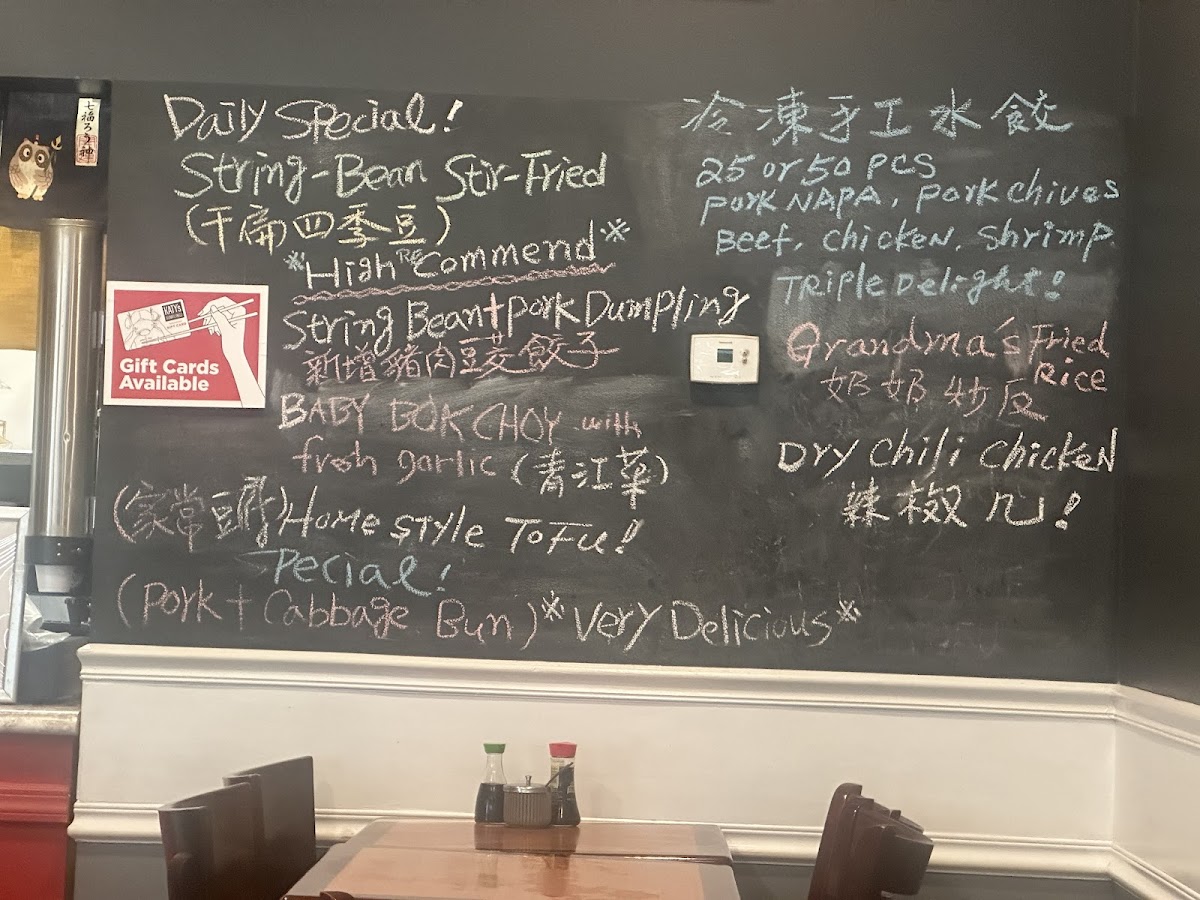 Daily Special!
String-Bean Stir-Fried
(干扁四季豆)
*High Recommend*
String Bean+pork Dumpling
新增豬肉豆茭餃子
BABY BOKCHOY with
fresh garlic (青江菜)
(家常豆腐) Home style ToFu!
Special!
(pork + Cabbage Bun) *Very Delicious*
冷凍手工水餃
25 or 50 PCS
pork NAPA, pork chives
Beef, chicken, shrimp.
Triple Delight!
Grandma's Fried
Rice
奶奶炒反
Dry chili chicken
辣椒几!
七福ろう神
KATY'S
Gift Cards
Available